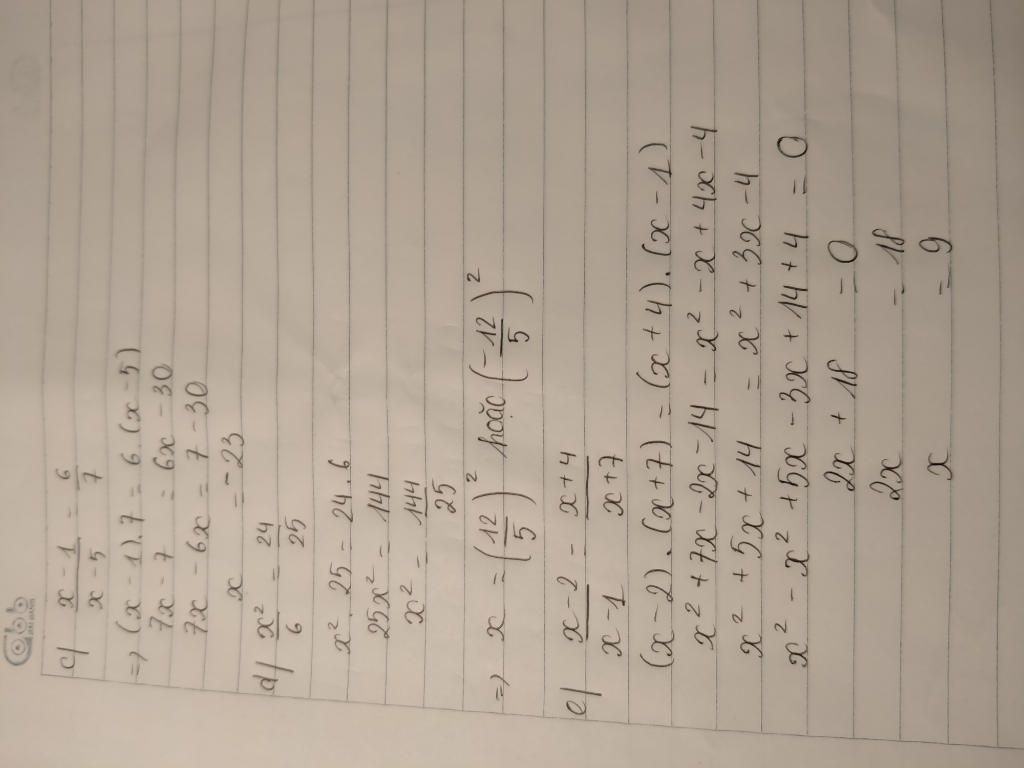 c) x-1/x-5 = 6/7
=> (x-1).7 = 6.(x-5)
7x-7 = 6x-30
7x-6x = 7-30
x = -23
d) x²/6 = 24/25
x².25 = 24.6
25x² = 144
x² = 144/25
=> x = (12/5)² hoặc (-12/5)²
e) x-2/x-1 = x+4/x+7
(x-2).(x+7) = (x+4).(x-1)
x²+7x-2x-14 = x²-x+4x-4
x²+5x+14 = x²+3x-4
x²-x²+5x-3x+14+4 = 0
2x+18 = 0
2x = 18
x = 9